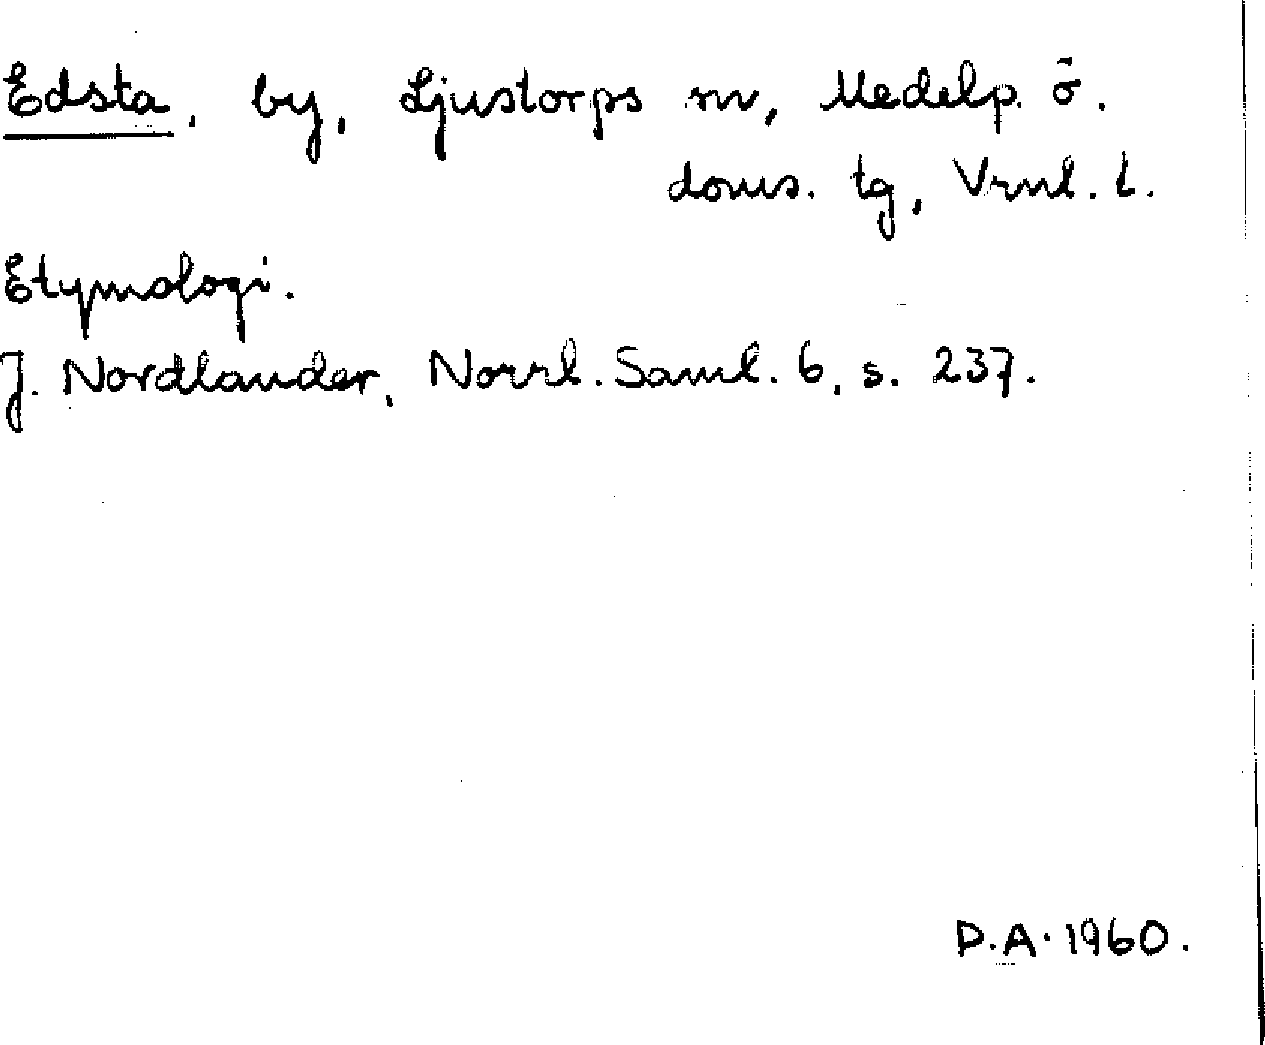 Edsta, by, Ljustorps sn, Medelp. ö.
doms. tg, Vrnl. l.
Etymologi.
J. Nordlander, Norrl. Saml. 6, s. 237.
D.A. 1960.